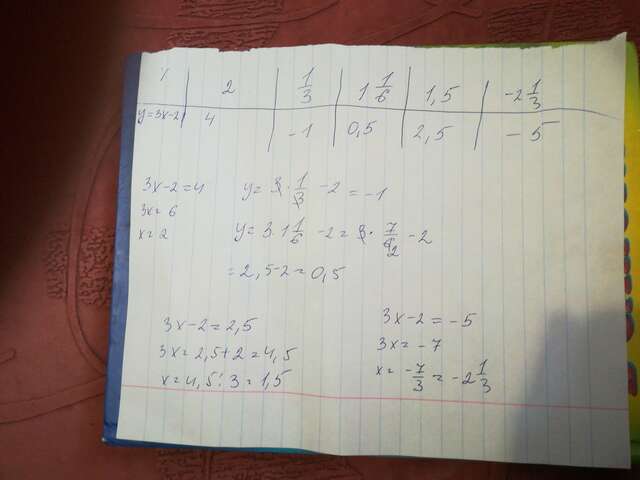 2 | 1/3 | 1 1/6 | 1,5 | -2 1/3
y=3x-2 | 4 | -1 | 0,5 | 2,5 | -5
3x-2=4
3x=6
x=2
y=3·1/3-2=-1
y=3·1 1/6-2=3·7/6 2-2
=2,5-2=0,5
3x-2=2,5
3x=2,5+2=4,5
x=4,5:3=1,5
3x-2=-5
3x=-7
x=-7/3=-2 1/3